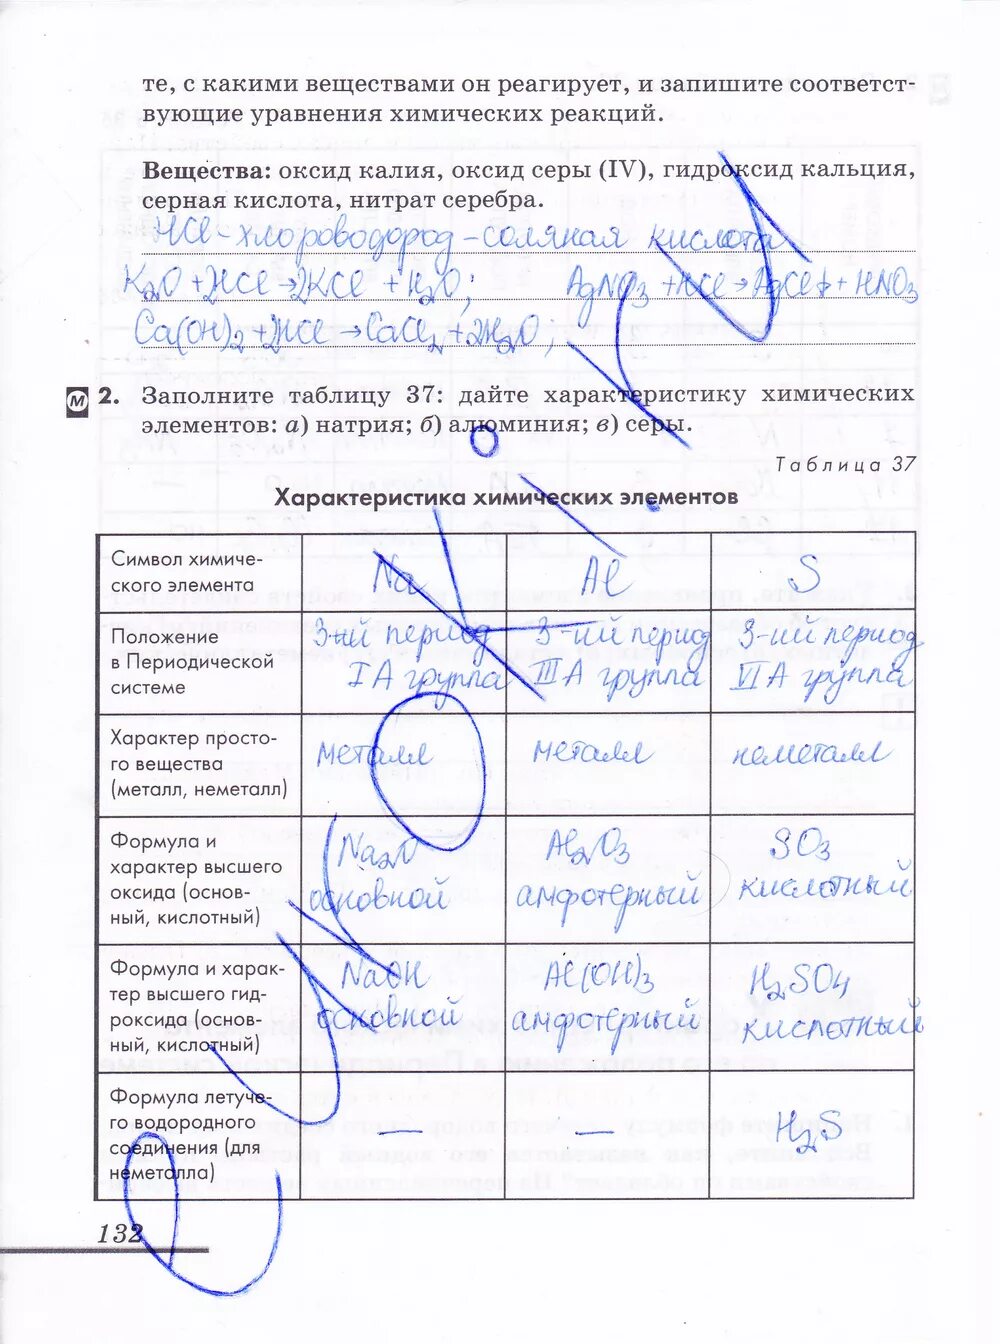 те, с какими веществами он реагирует, и запишите соответст-
вующие уравнения химических реакций.
Вещества: оксид калия, оксид серы (IV), гидроксид кальция,
серная кислота, нитрат серебра.
HCl-хлороводород-соляная кислота
K2O + 2HCl → 2KCl + H2O; AgNO3 + HCl → AgCl↓ + HNO3
Ca(OH)2 + 2HCl → CaCl2 + 2H2O;
м 2. Заполните таблицу 37: дайте характеристику химических
элементов: а) натрия; б) алюминия; в) серы.
Таблица 37
Характеристика химических элементов
Символ химиче-
ского элемента
Na
Al
S
Положение
в Периодической
системе
3-ий период
IA группа
3-ий период
IIIA группа
3-ий период
VIA группа
Характер просто-
го вещества
(металл, неметалл)
металл
металл
неметалл
Формула и
характер высшего
оксида (основ-
ный, кислотный)
Na2O
основной
Al2O3
амфотерный
SO3
кислотный
Формула и харак-
тер высшего гид-
роксида (основ-
ный, кислотный)
NaOH
основной
Al(OH)3
амфотерный
H2SO4
кислотный
Формула летуче-
го водородного
соединения (для
неметалла)
—
—
H2S
132